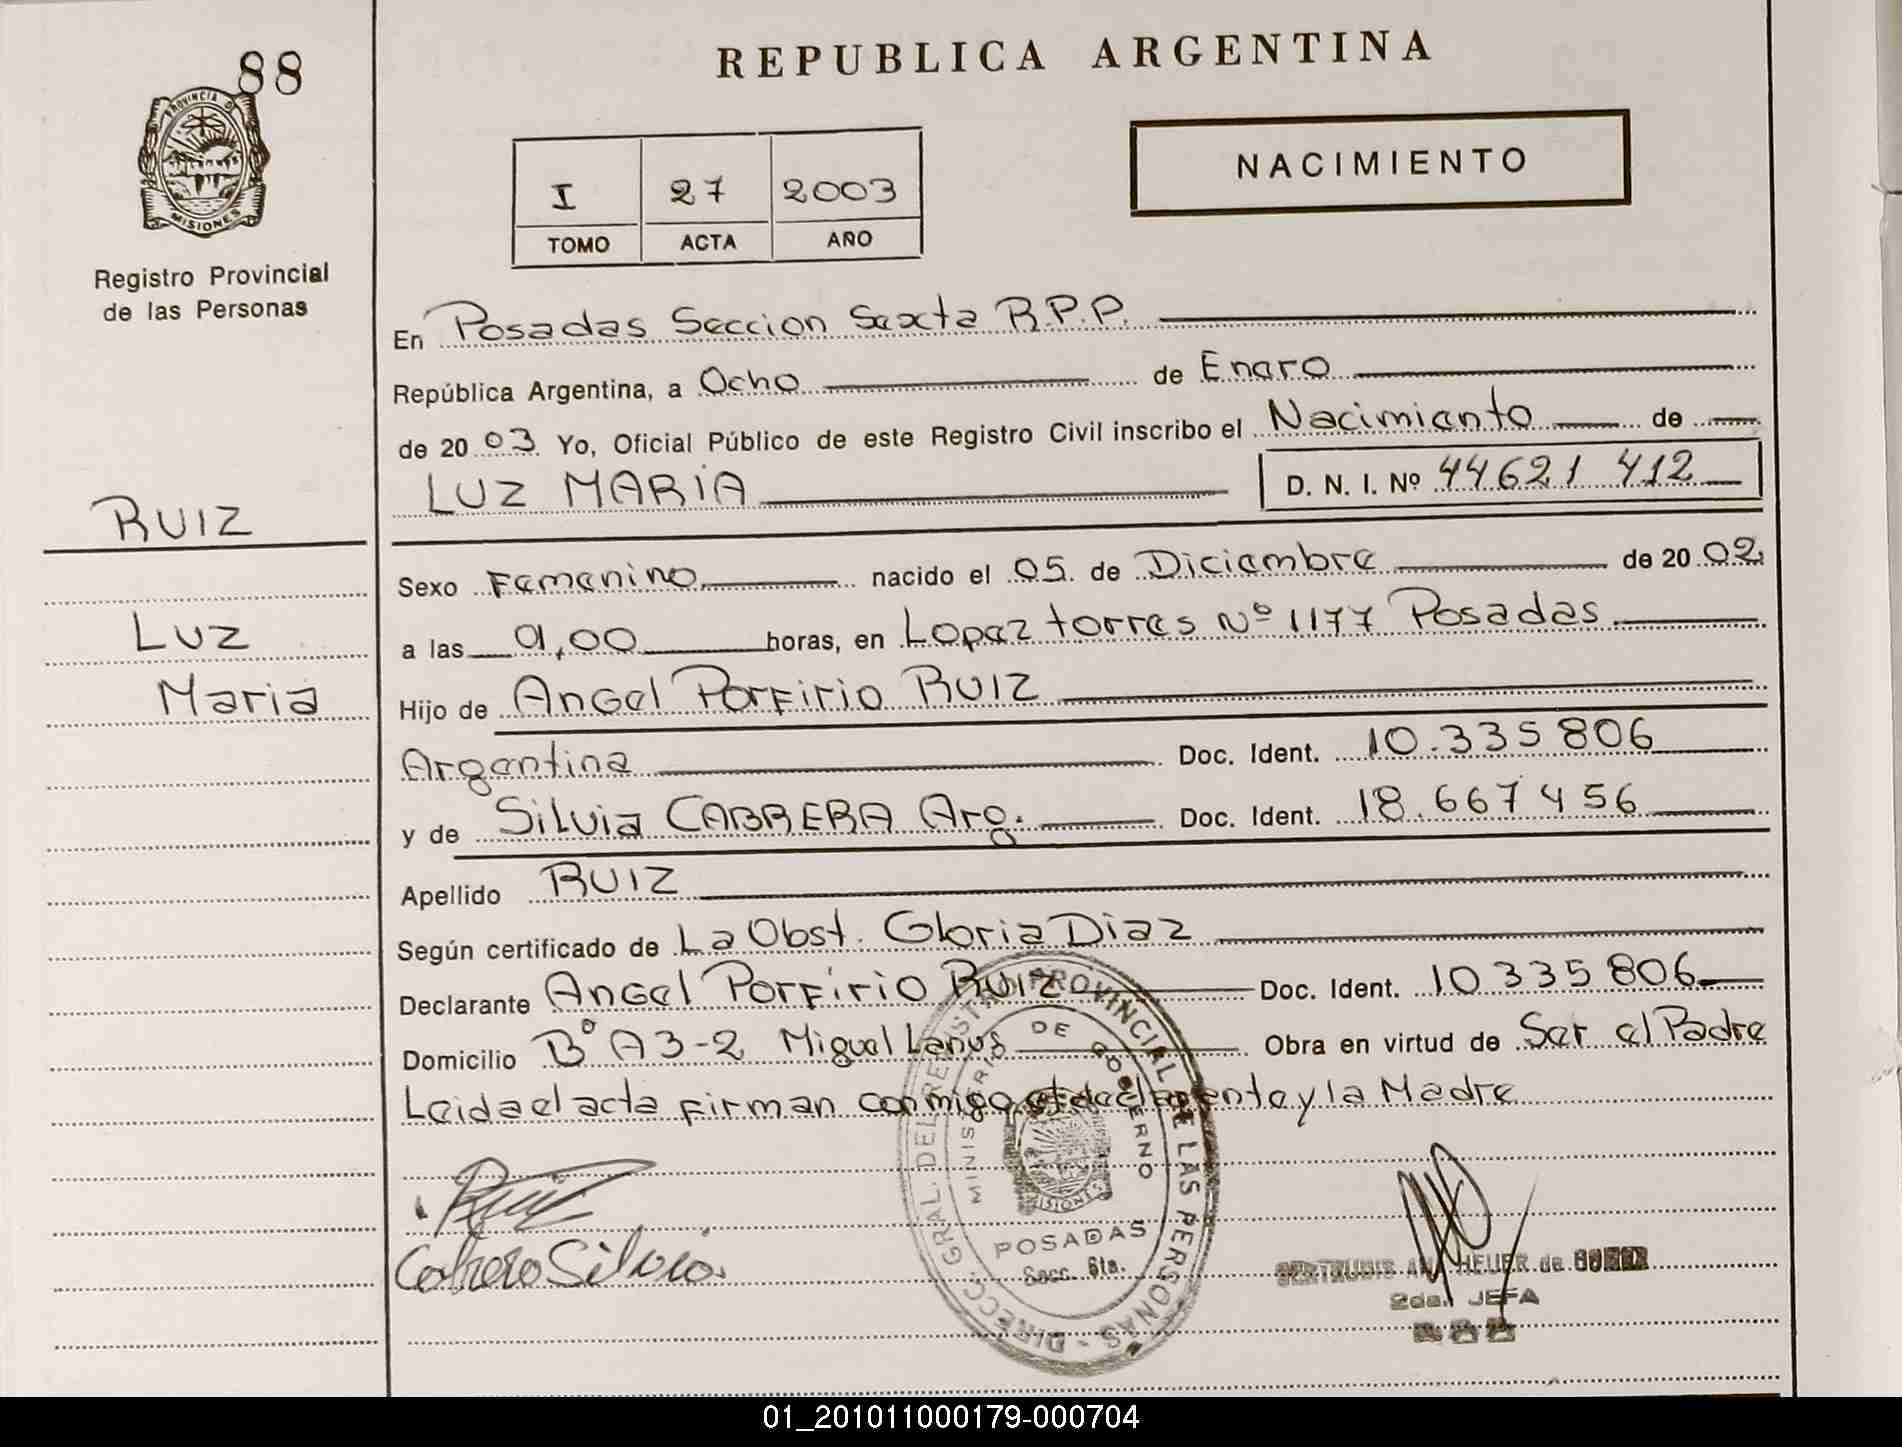 88
REPUBLICA ARGENTINA
PROVINCIA DE
MISIONES
Registro Provincial
de las Personas
NACIMIENTO
I 27 2003
TOMO ACTA AÑO
En Posadas Seccion Sexta R.P.P.
República Argentina, a Ocho de Enero
de 2003 Yo, Oficial Público de este Registro Civil inscribo el Nacimiento de
LUZ MARIA D. N. I. Nº 44621 412
RUIZ
Luz
Maria
Sexo Femenino nacido el 05 de Diciembre de 2002
a las horas, en Lopez torres Nº 1177 Posadas
Hijo de Angel Porfirio RUIZ
Argentina Doc. Ident. 10.335 806
y de Silvia CABRERA Arg. Doc. Ident. 18.667 456
Apellido RUIZ
Según certificado de La Obst. Gloria Diaz
Declarante Angel Porfirio Ruiz Doc. Ident. 10 335 806
Domicilio Bº A3-2 Miguel Lanus Obra en virtud de Ser el Padre
Leida el acta firman conmigo el declarante y la Madre
Ruiz
Cabrera Silvia
DIRECC. GRAL. DEL REGISTRO PROVINCIAL DE LAS PERSONAS
MINISTERIO DE GOBIERNO
MISIONES
POSADAS
Secc. 6ta.
HEUER de
2da. JEFA
01_201011000179-000704